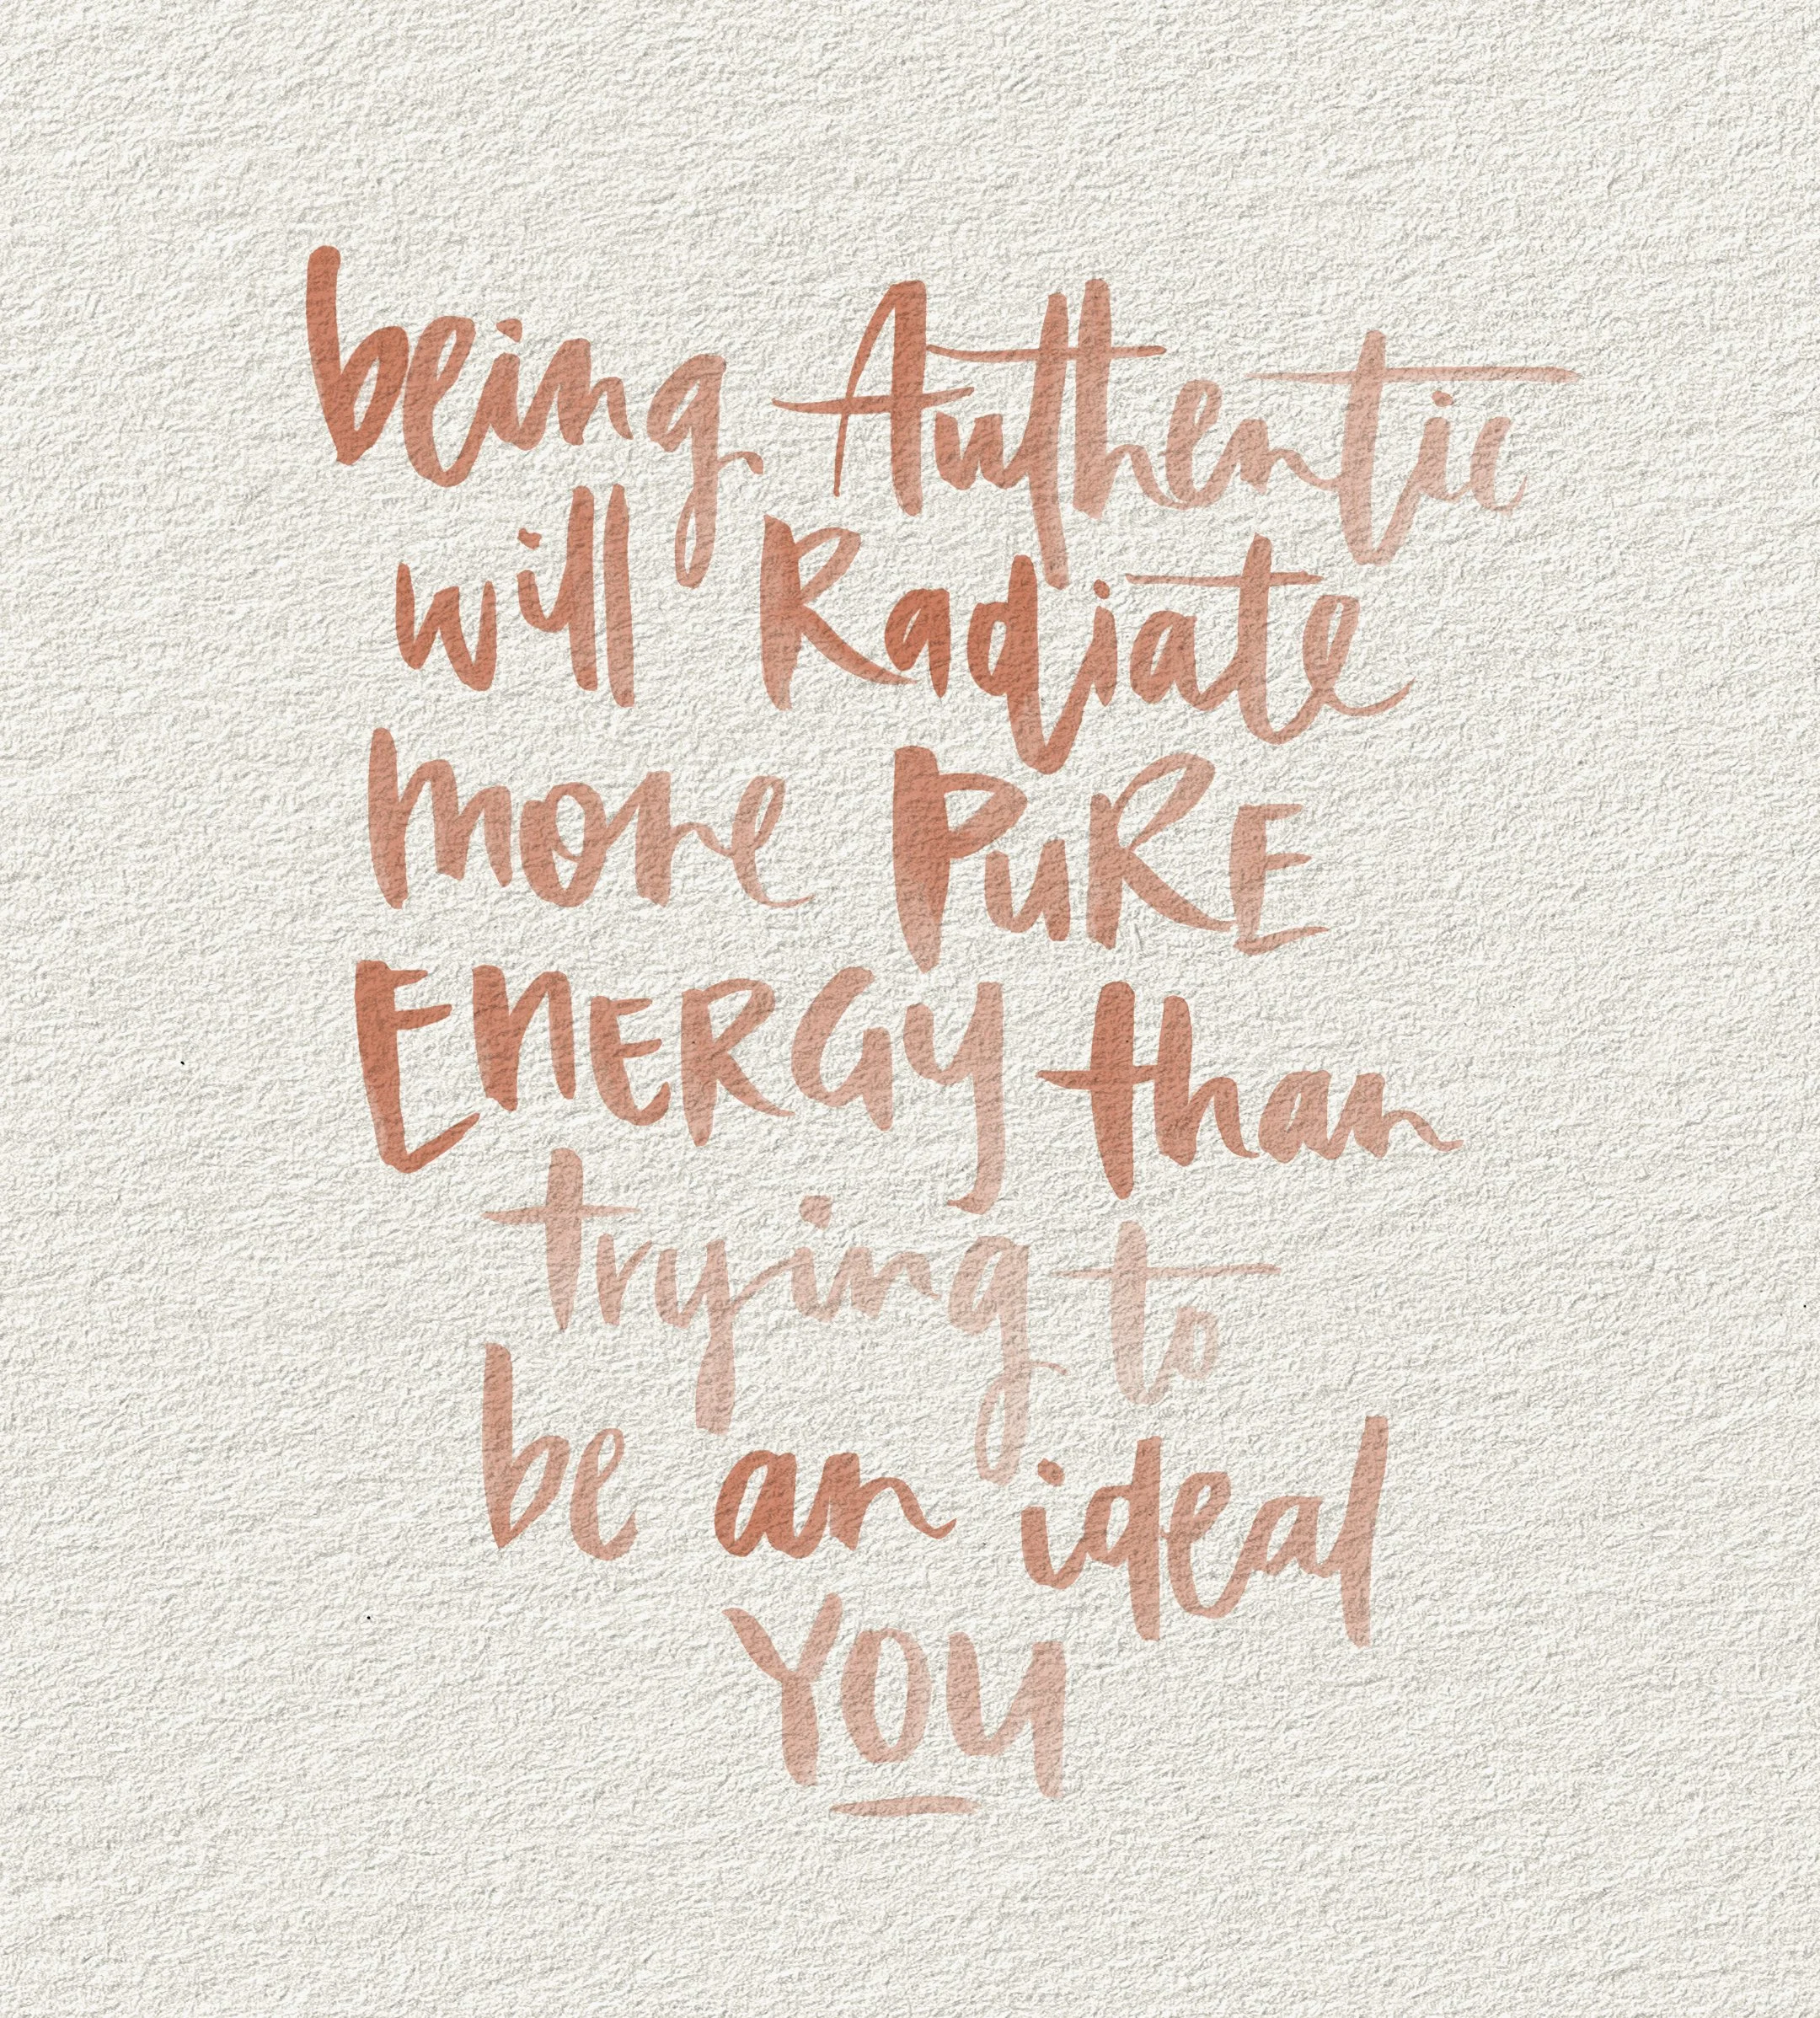 being Authentic
will Radiate
more PuRE
ENERGY than
trying to
be an ideal
YOU